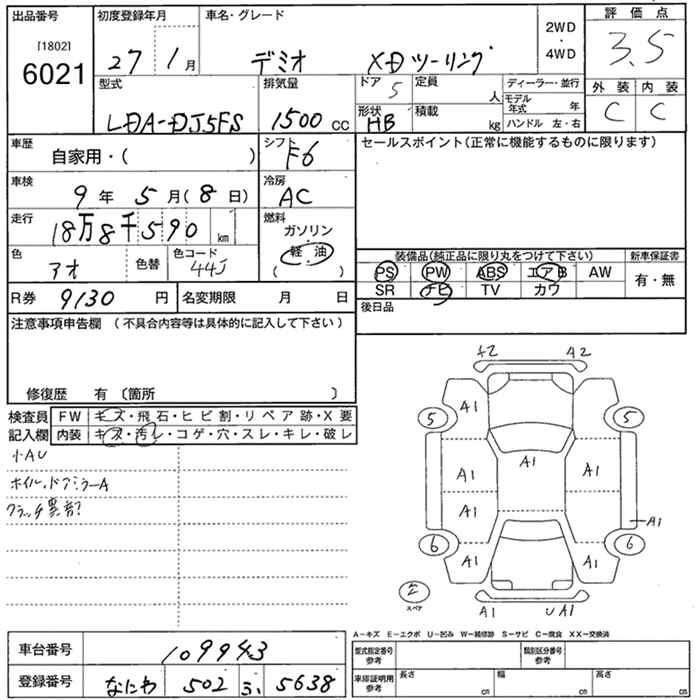 出品番号
[1802]
6021
初度登録年月
27 1月
車名・グレード
デミオ XDツーリング
2WD
・
4WD
評価点
3.5
外装 内装
C C
型式
LDA-DJ5FS
排気量
1500 cc
ドア
5
形状
HB
定員
人
積載
kg
ディーラー・並行
モデル年式 年
ハンドル 左・右
車歴
自家用・( )
シフト
F6
セールスポイント(正常に機能するものに限ります)
車検
9年 5月(8日)
冷房
AC
走行
18万8千590 km
燃料
ガソリン
軽・油
( )
色
アオ
色替
色コード
44J
装備品(純正品に限り丸をつけて下さい)
新車保証書
PS PW ABS エアB AW
有・無
SR ナビ TV カワ
R券 9130 円
名変期限 月 日
後日品
注意事項申告欄 (不具合内容等は具体的に記入して下さい)
修復歴 有 〔箇所 〕
検査員
記入欄
FW キズ・飛石・ヒビ割・リペア跡・X要
内装 キズ・汚レ・コゲ・穴・スレ・キレ・破レ
小AU
ホイル、ドアミラーA
クラッチ異音?
42 42
A1
5 5
A1
A1 A1
A1
A1
6 6
A1 A1
2
スペア
A1 UA1
A-キズ E-エクボ U-凹み W-補修跡 S-サビ C-腐食 XX-交換済
車台番号
109943
登録番号
なにわ 502 ふ 5638
型式指定番号
参考
類別区分番号
参考
車庫証明用
参考
長さ cm
幅 cm
高さ cm